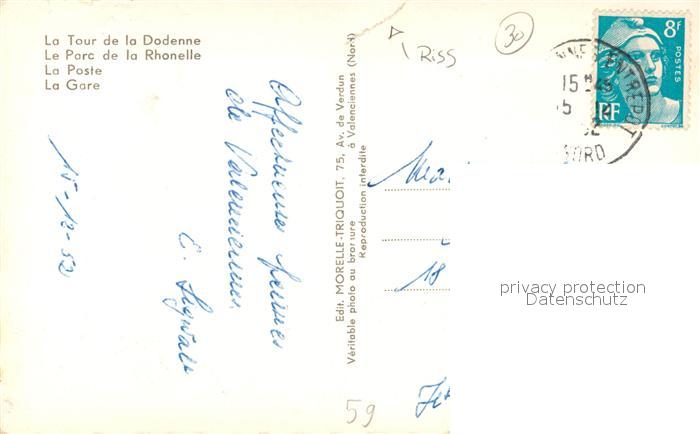 La Tour de la Dodenne
Le Parc de la Rhonelle
La Poste
La Gare
15-12-52
Affectueuses pensées
de Valenciennes
Edit. MORELLE-TRIQUOIT, 75, Av. de Verdun
à Valenciennes (Nord)
Véritable photo au bromure
Reproduction interdite
RISS
30
8F
POSTES
RF
ENTREPOT
15 H 45
NORD
18
59
privacy protection
Datenschutz